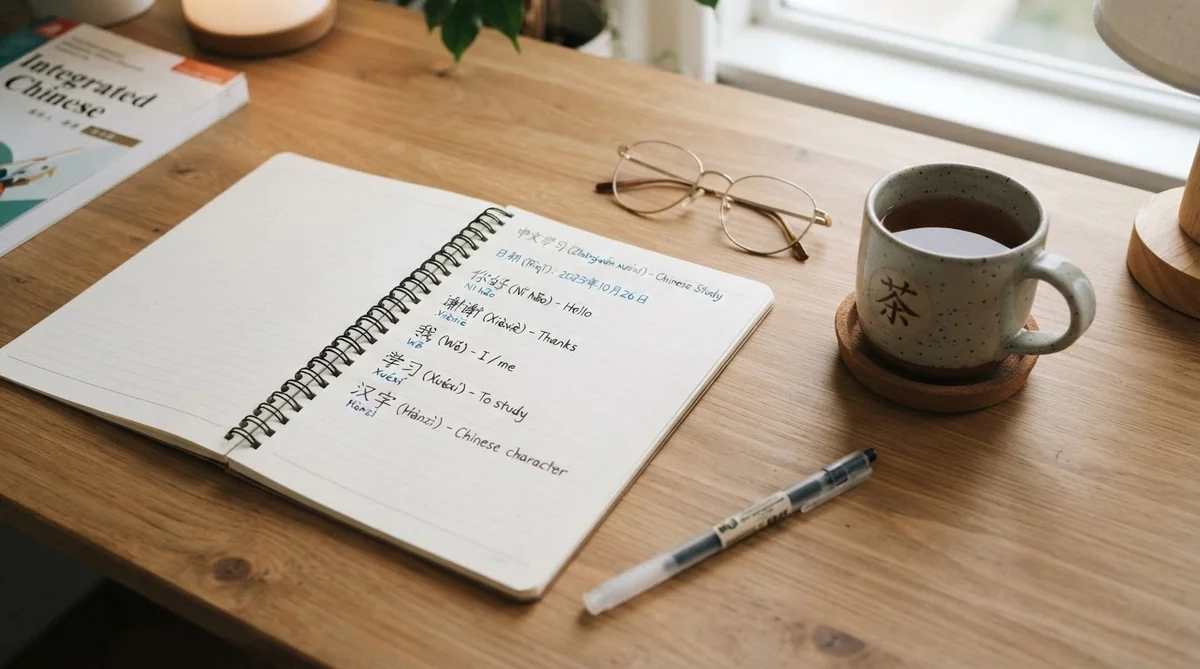 Integrated
Chinese
中文学习 (Zhōngwén xuéxí) - Chinese Study
日期 (Rìqī): 2023年10月26日
你好 (Nǐ hǎo) - Hello
Nǐ hǎo
谢谢 (Xièxiè) - Thanks
我 (Wǒ) - I/me
Wǒ
学习 (Xuéxí) - To study
Xuéxí
汉字 (Hànzì) - Chinese character
茶